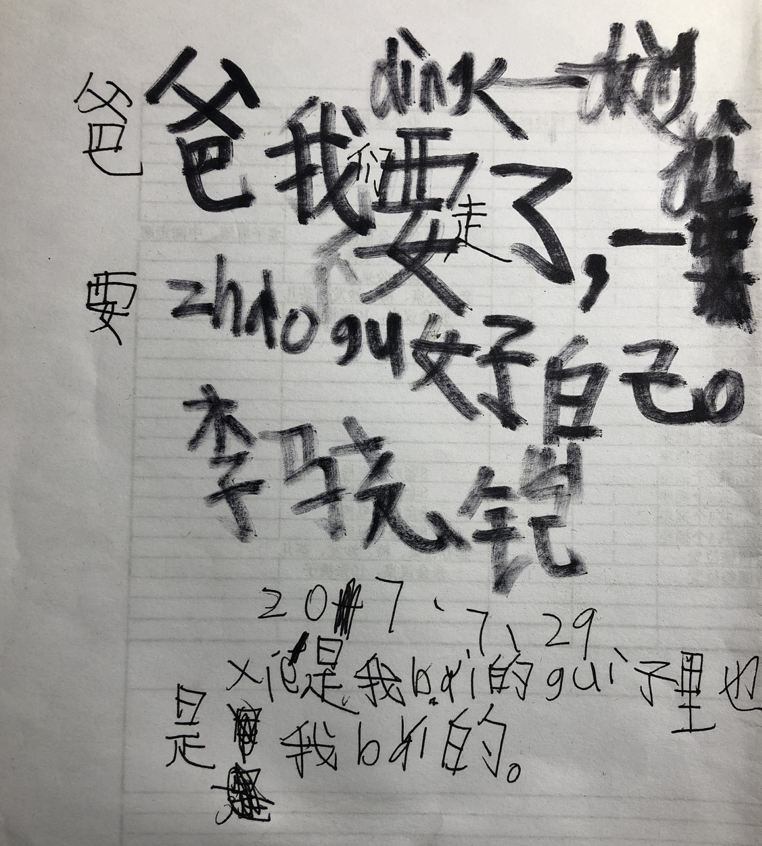 爸 爸我们要走了,一
要 zhaogu好自己。
李骁铠
2017、7、29
xie是我bai的gui子里也
是我bai的。